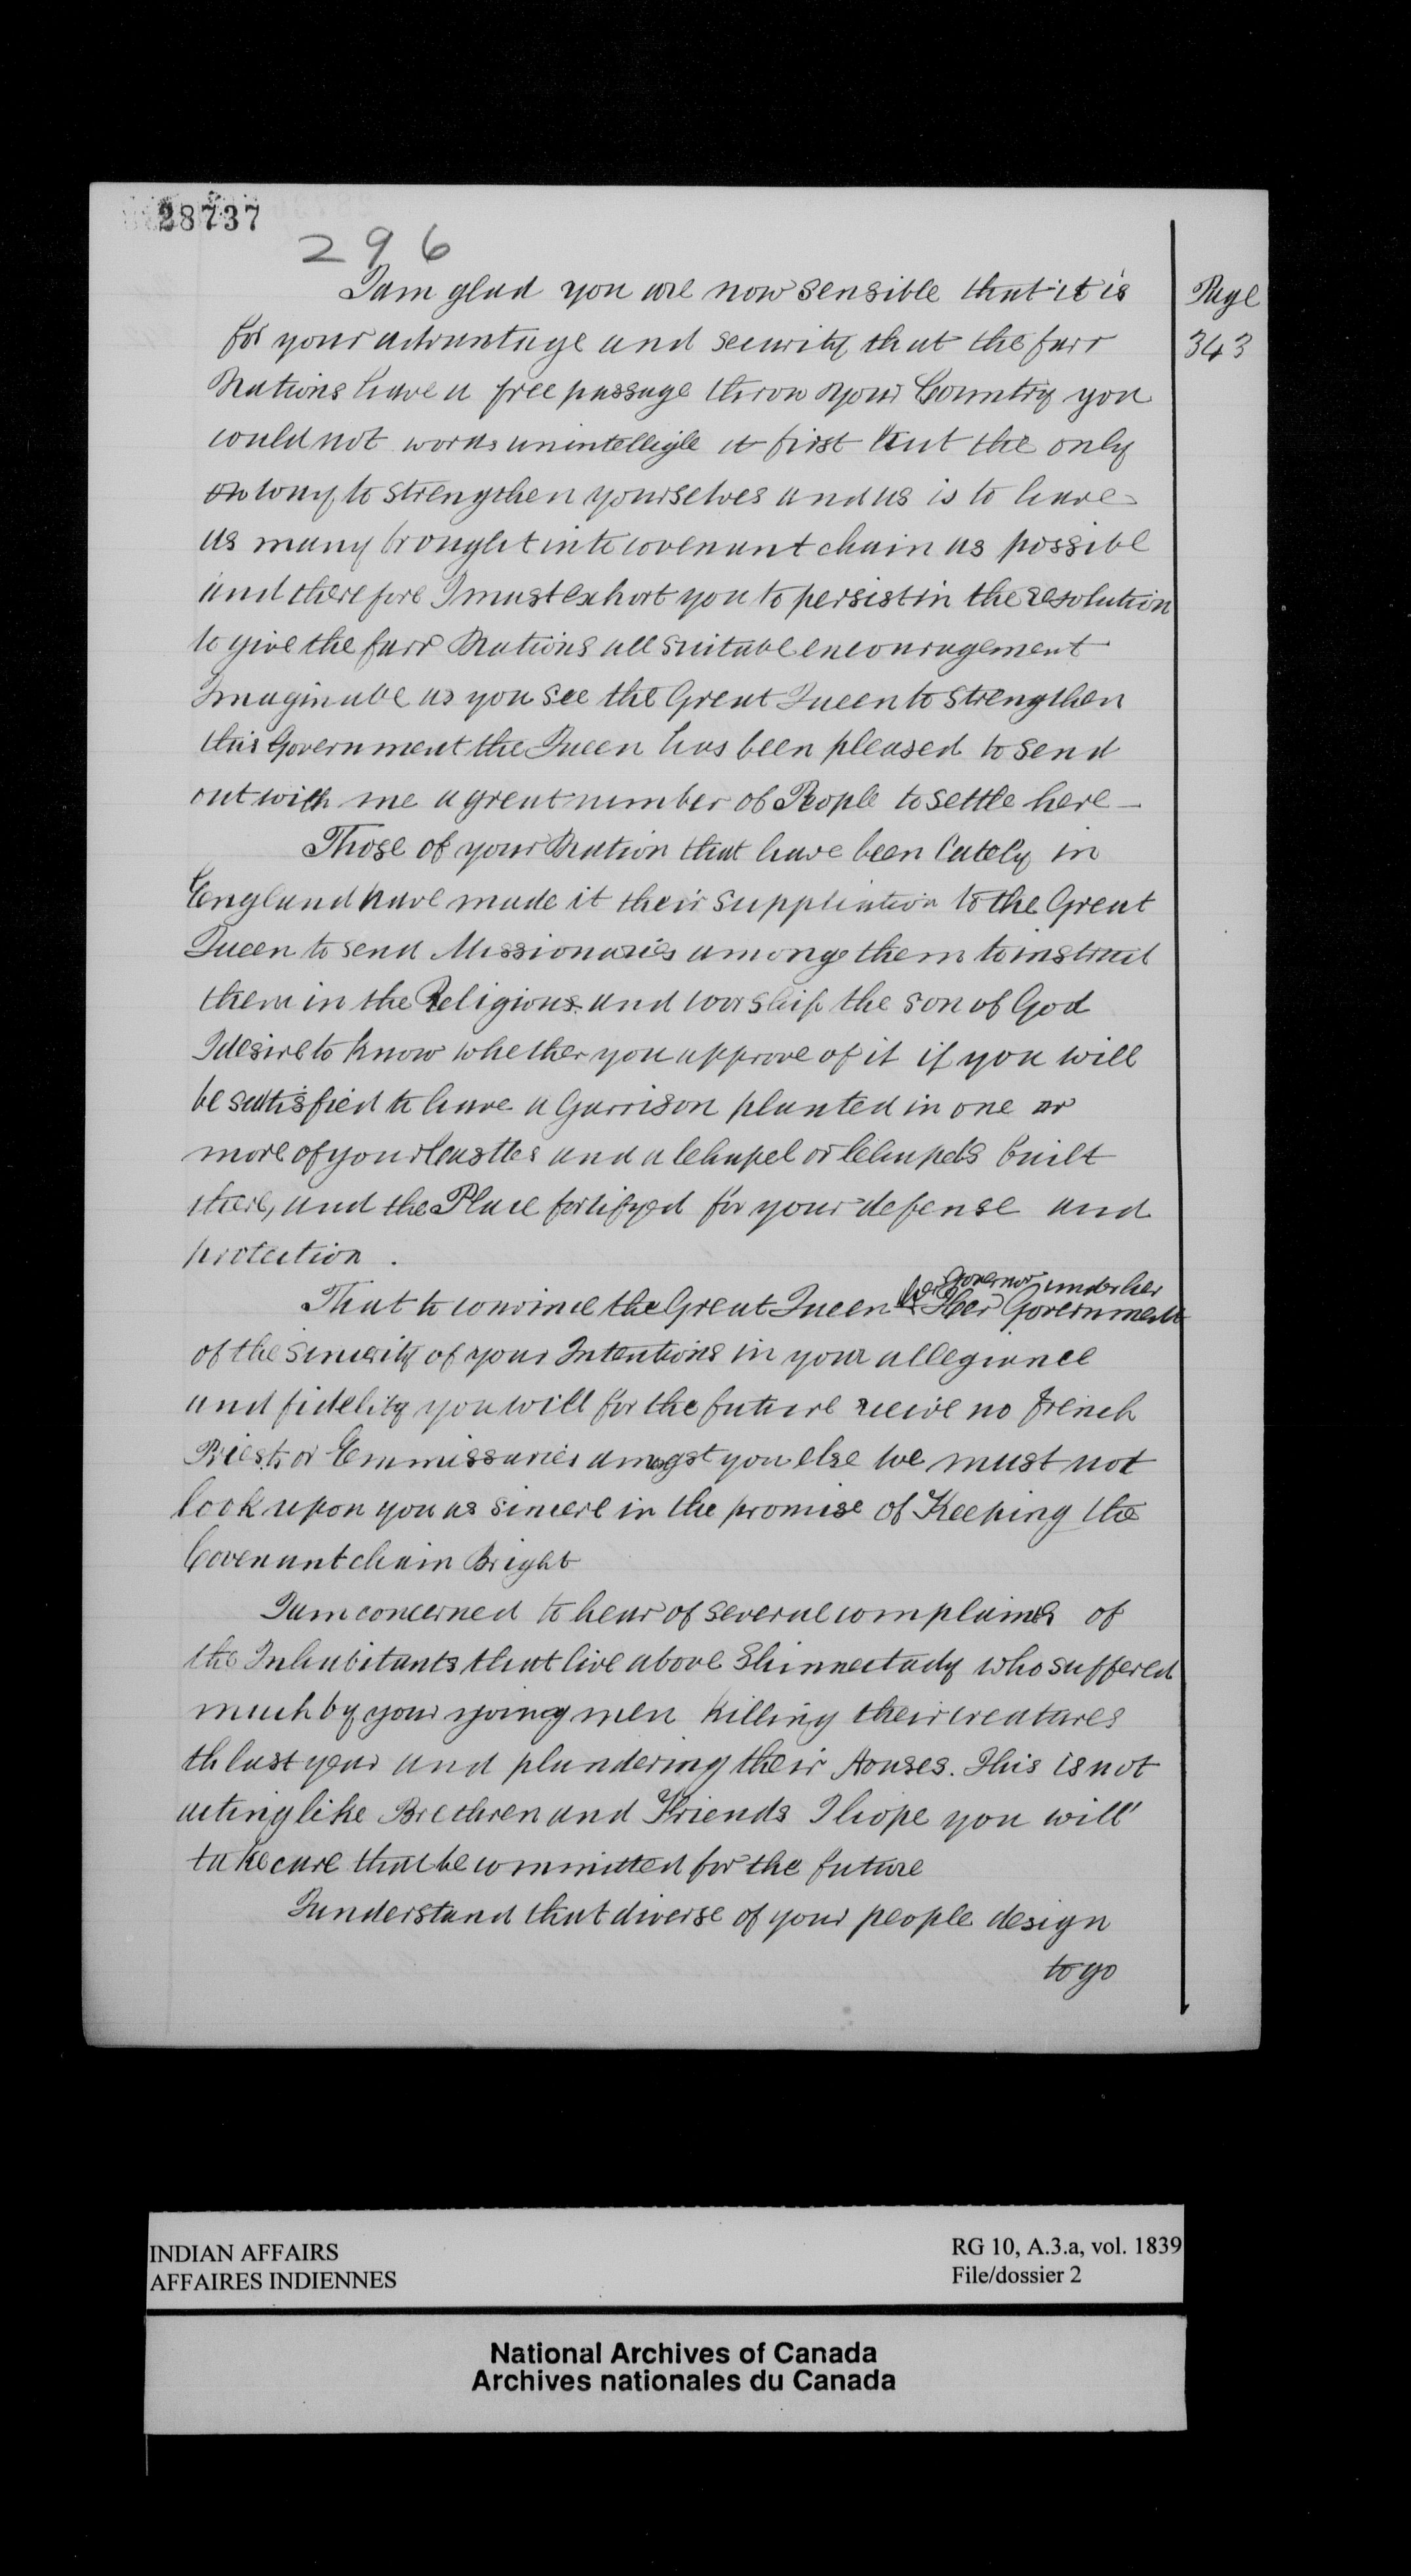 28737
296
I am glad you are now sensible that it is
Page
343
for your advantage and security that the farr
Nations have a free passage throw your Country you
could not words unintelligle it first but the only
on way to strengthen yourselves and us is to have
as many brought into covenant chain as possible
and therefore I must exhort you to persist in the resolution
to give the farr Nations all suitable encouragement
Imaginable as you see the Great Queen to strengthen
this Government the Queen has been pleased to send
out with me a great number of People to settle here —
Those of your Nation that have been lately in
England have made it their suppliation to the Great
Queen to send Missionaries among them to instruct
them in the Religions and worship the son of God
I desire to know whether you approve of it if you will
be sattisfied to have a Garrison planted in one or
more of your Castles and a Chapel or Chapels built
there, and the Place fortifyed for your defense and
protection .
her Governor under her
That to convince the Great Queen & Her Government
of the sincerity of your Intentions in your allegiance
and fidelity you will for the future receive no french
Priests or Emmissaries amogst you else we must not
look upon you as sincere in the promise of Keeping the
Covenant chain Bright
I am concerned to hear of several complaints of
the Inhabitants that live above Shinnectady who suffered
much by your young men killing their creatures
th last year and plundering their Houses. This is not
acting like Brethren and Friends I hope you will
take care that be committed for the future
I understand that diverse of your people design
to go
INDIAN AFFAIRS
AFFAIRES INDIENNES
RG 10, A.3.a, vol. 1839
File/dossier 2
National Archives of Canada
Archives nationales du Canada